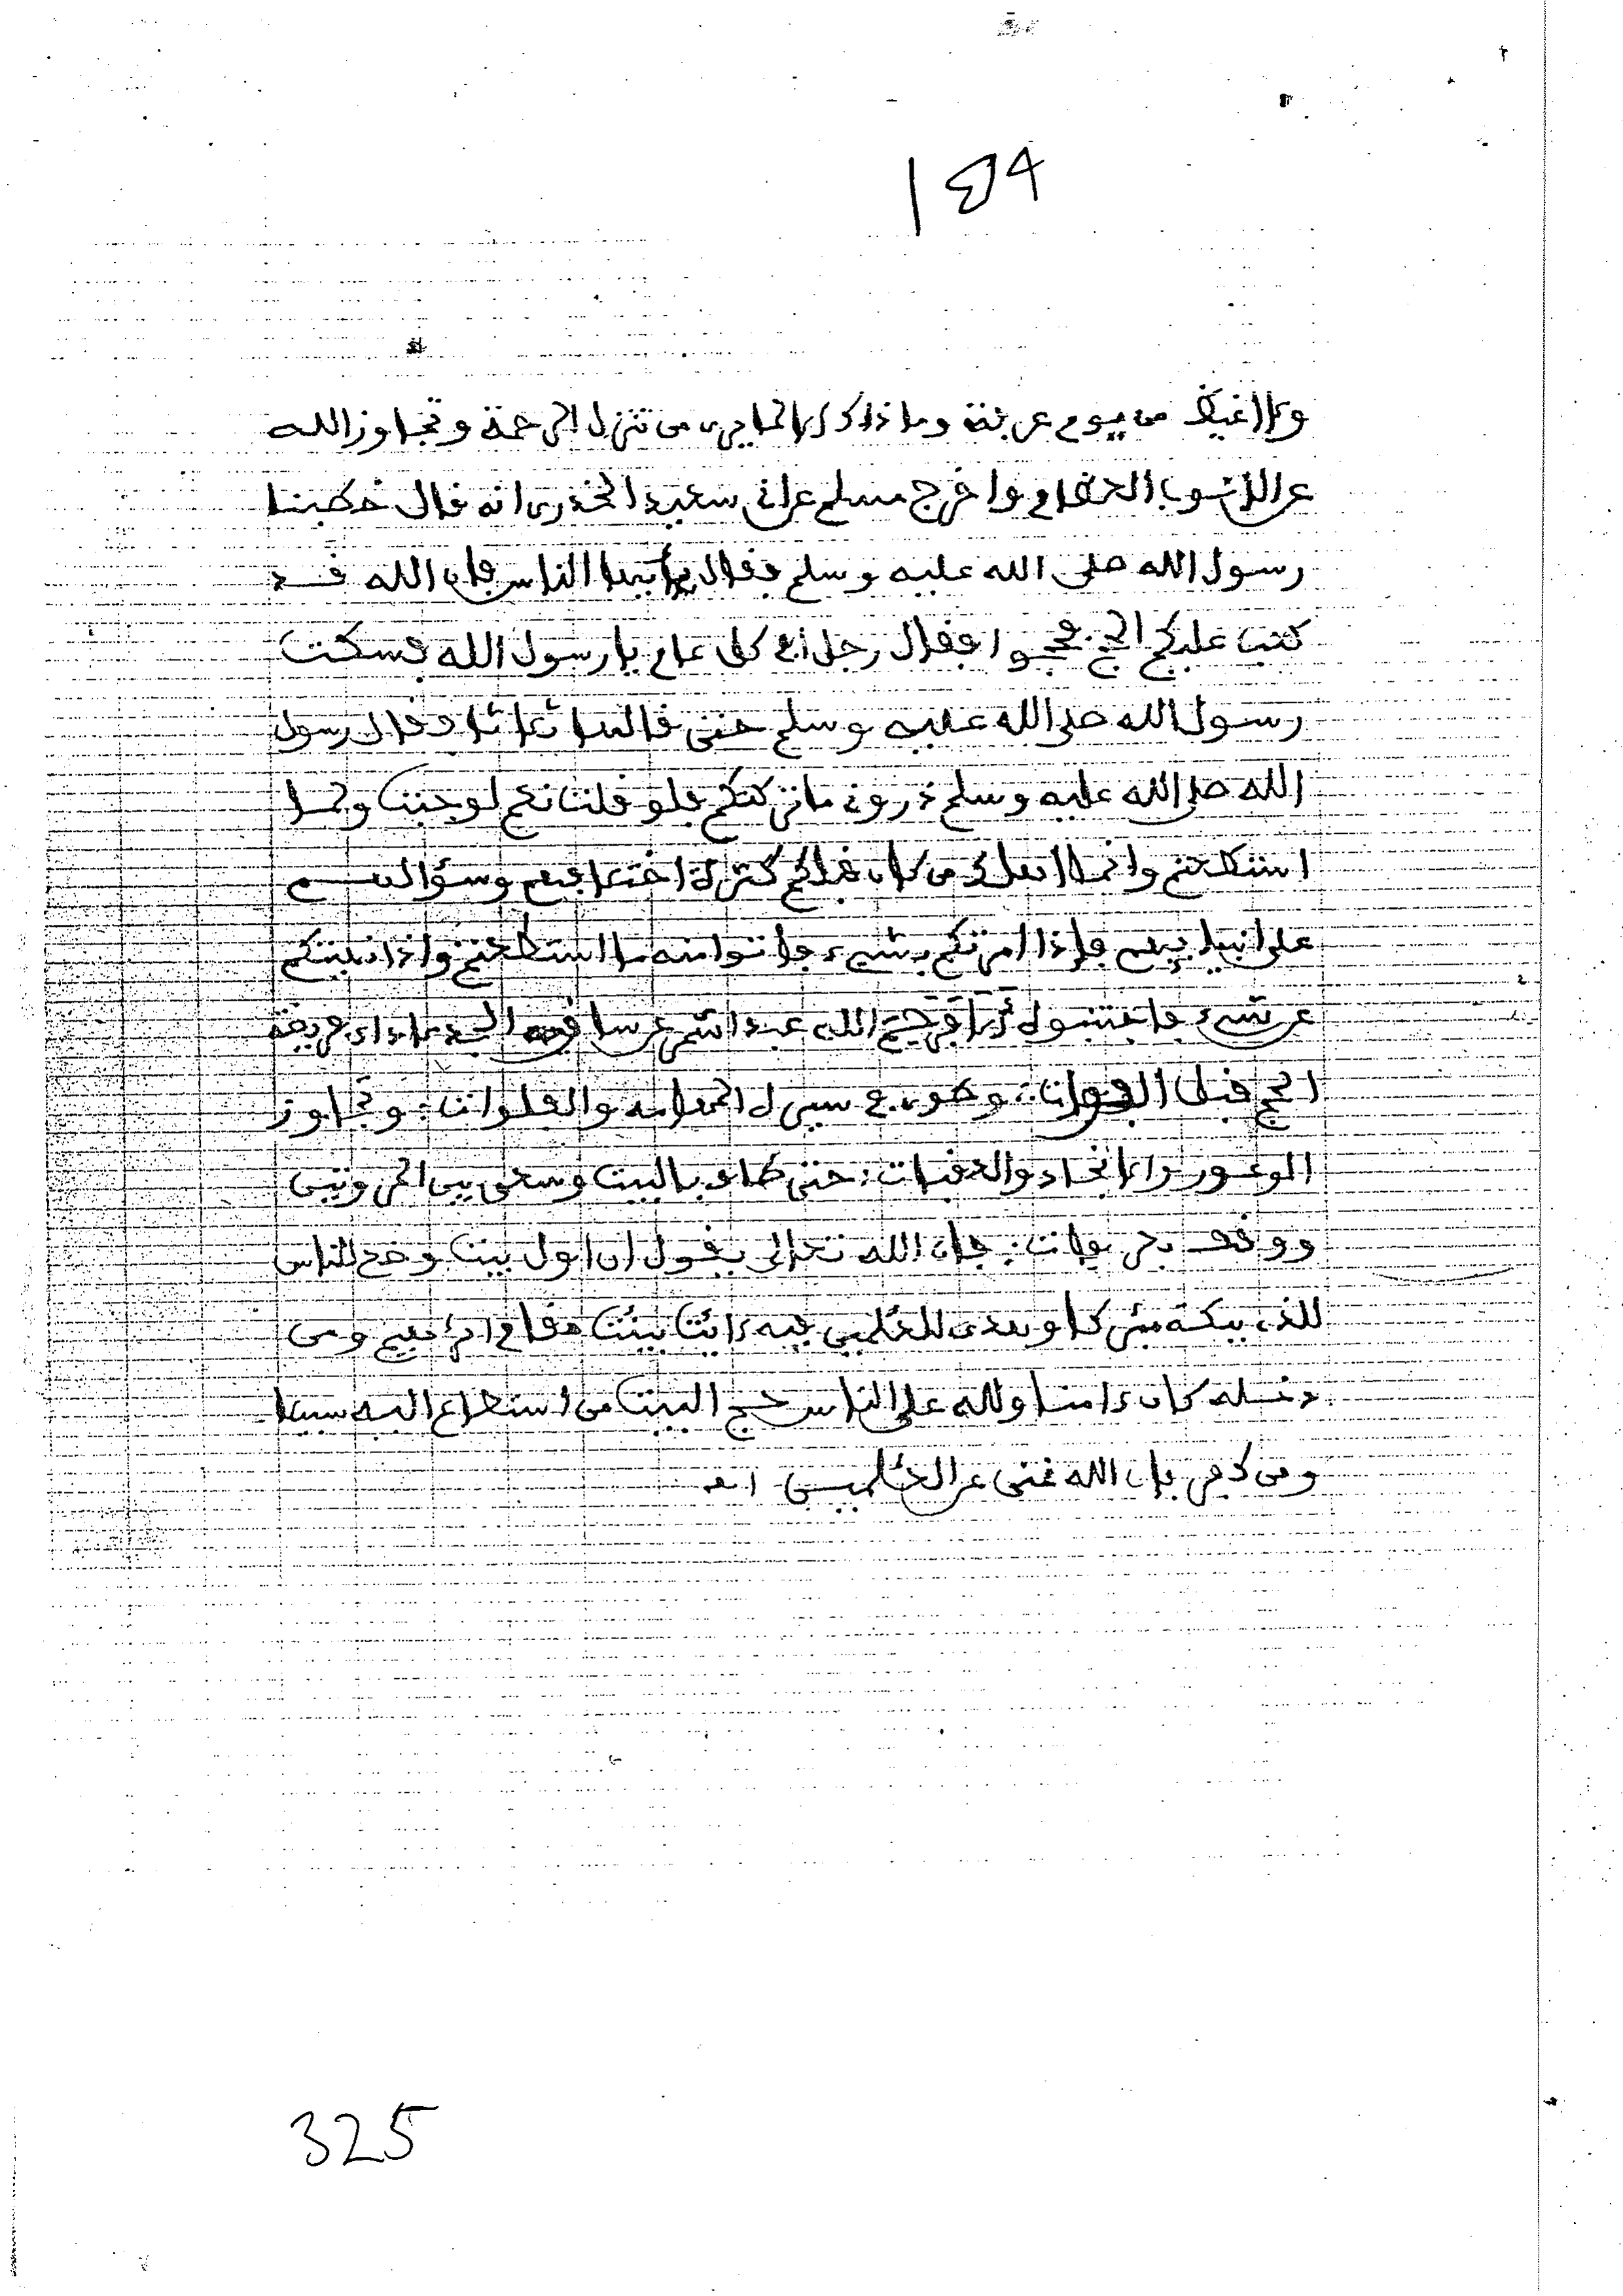 ١٤٩
ولا اغيظ من يوم عرفة وما ذاك الا لما يرى من تنزل الرحمة وتجاوز الله
عن الذنوب العظام واخرج مسلم عن ابى سعيد الخدرى انه قال خطبنا
رسول الله صلى الله عليه وسلم فقال يأيها الناس فإن الله قد
كتب عليكم الحج فحجوا فقال رجل افى كل عام يا رسول الله فسكت
رسول الله صلى الله عليه وسلم حتى قالها ثلاثا فقال رسول
الله صلى الله عليه وسلم ذرونى ماتركتكم فلو قلت نعم لوجبت ولما
استطعتم وانما اهلك من كان قبلكم كثرة اختلافهم وسؤالهم
على انبيائهم فإذا امرتكم بشىء فأتوا منه ما استطعتم واذا نهيتكم
عن شىء فاجتنبوه الا فرحم الله عبدا شمر عن ساق الجد لاداء فريضة
الحج قبل الفوات وطوى فى سيره المهامه والفلوات وتجاوز
الوعور والانجاد والعقبات حتى طاف بالبيت وسعى بين المروتين
ووقف بعرفات فإن الله تعالى يقول ان اول بيت وضع للناس
للذى ببكة مبركا وهدى للعلمين فيه ءايت بينت مقام ابرهيم ومن
دخله كان ءامنا ولله على الناس حج البيت من استطاع اليه سبيلا
ومن كفر فإن الله غنى عن العلمين اهـ
325